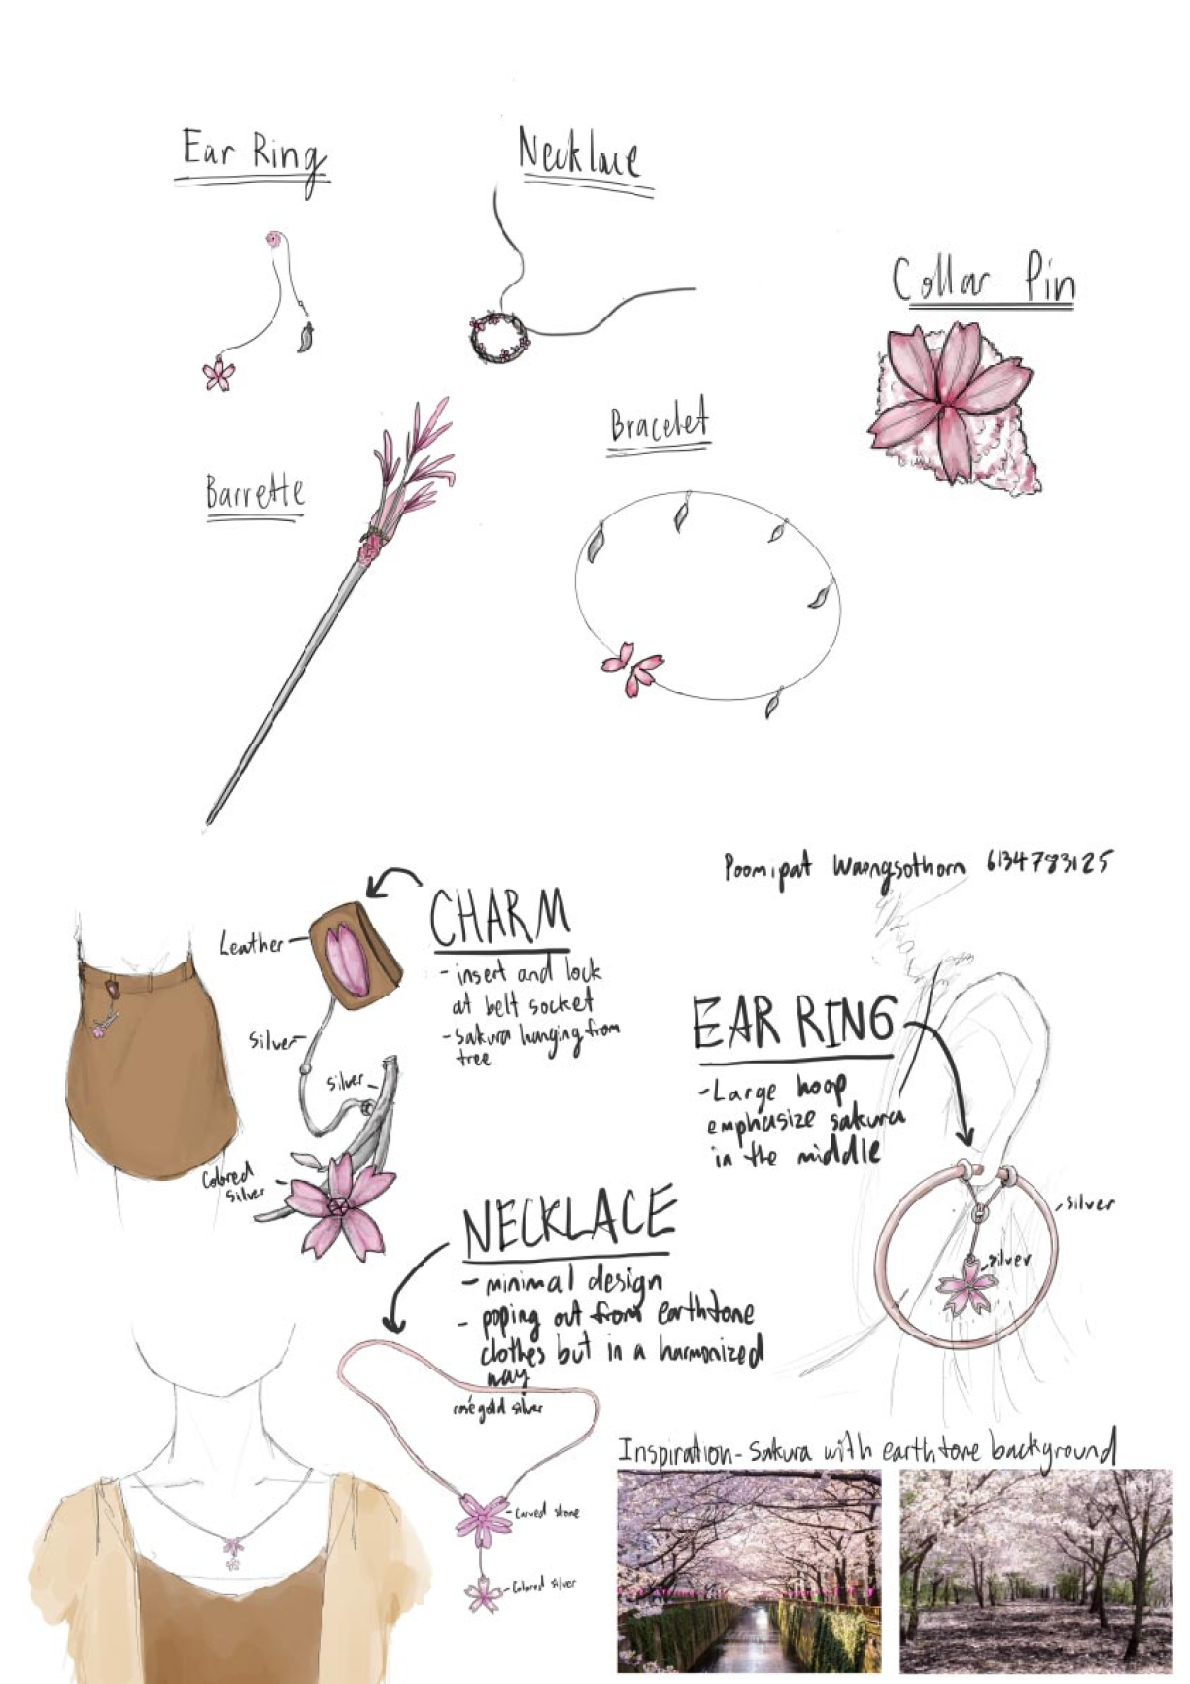 Ear Ring
Necklace
Collar Pin
Bracelet
Barrette
Poomipat Waengsothorn 6134783125
CHARM
- insert and lock
at belt socket
- sakura hanging from
tree
Leather
Silver
Silver
Colored
Silver
EAR RING
- Large hoop
emphasize sakura
in the middle
silver
silver
NECKLACE
- minimal design
- poping out from earthtone
clothes but in a harmonized
way
rosé gold silver
Carved stone
Colored silver
Inspiration - Sakura with earthtone background